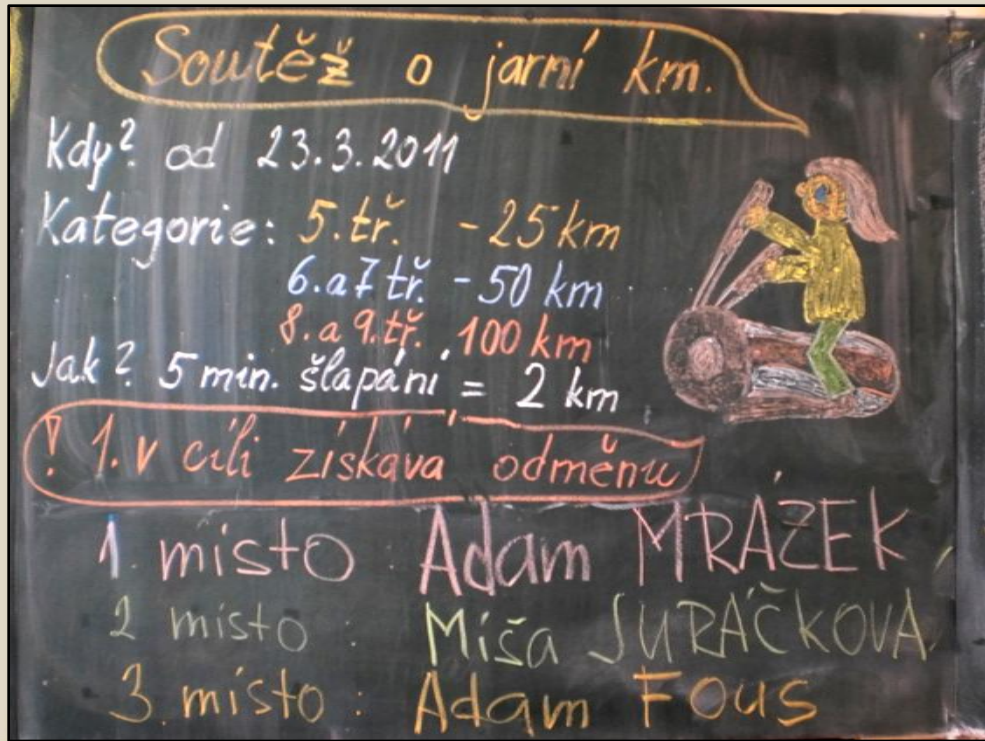 Soutěž o jarní km.
Kdy? od 23.3.2011
Kategorie: 5.tř. - 25 km
6.a7 tř. - 50 km
8.a 9.tř. 100 km
Jak? 5 min. šlapání = 2 km
! 1. v cíli získává odměnu
1. místo : Adam MRÁZEK
2 místo : Míša JURÁČKOVÁ
3. místo : Adam FOUS